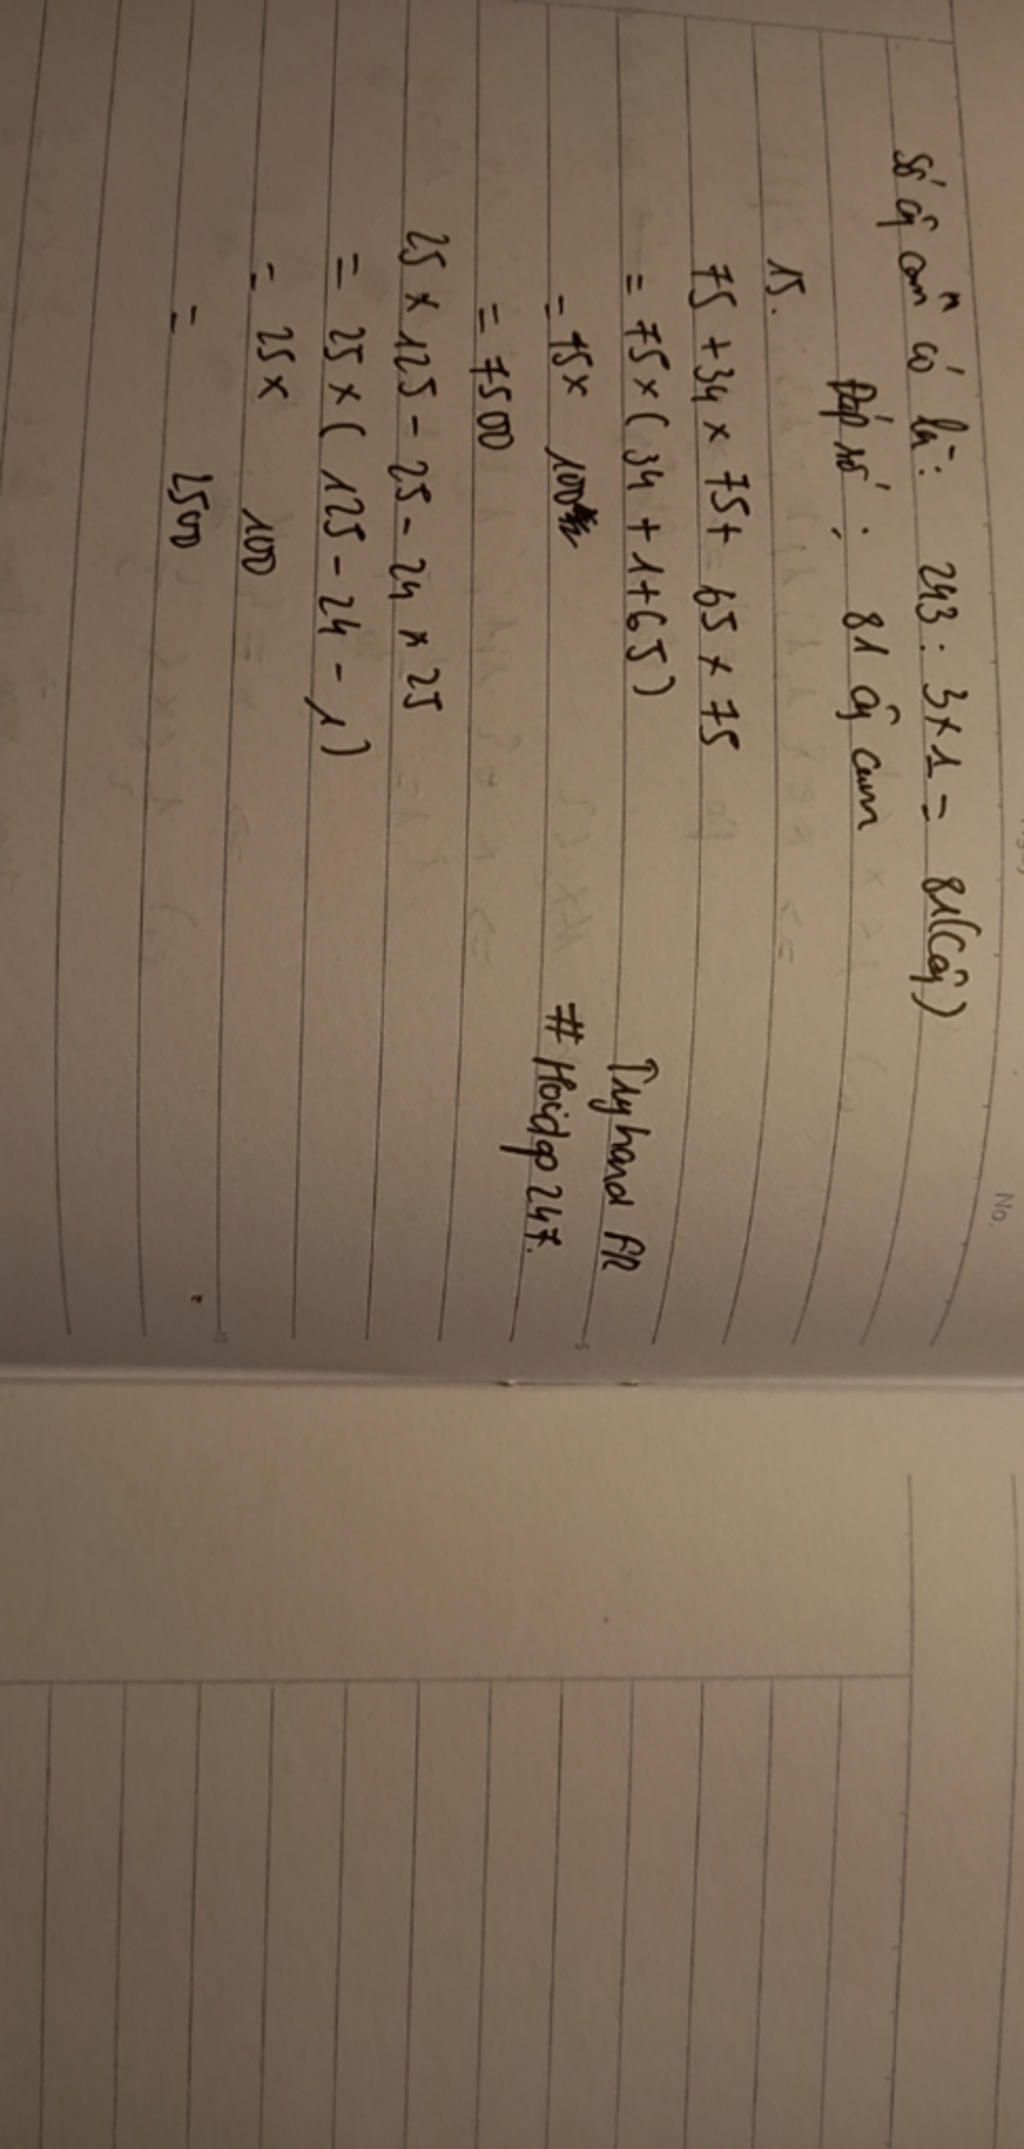 No.
Số cây cam có là: 243 : 3 x 1 = 81 (cây)
Đáp số: 81 cây cam
15.
75 + 34 x 75 + 65 x 75
= 75 x ( 34 + 1 + 65 )
= 75 x 100
= 7500
25 x 125 - 25 - 24 x 25
= 25 x ( 125 - 24 - 1 )
= 25 x 100
= 2500
Tryhard FR
#Hoidap247.